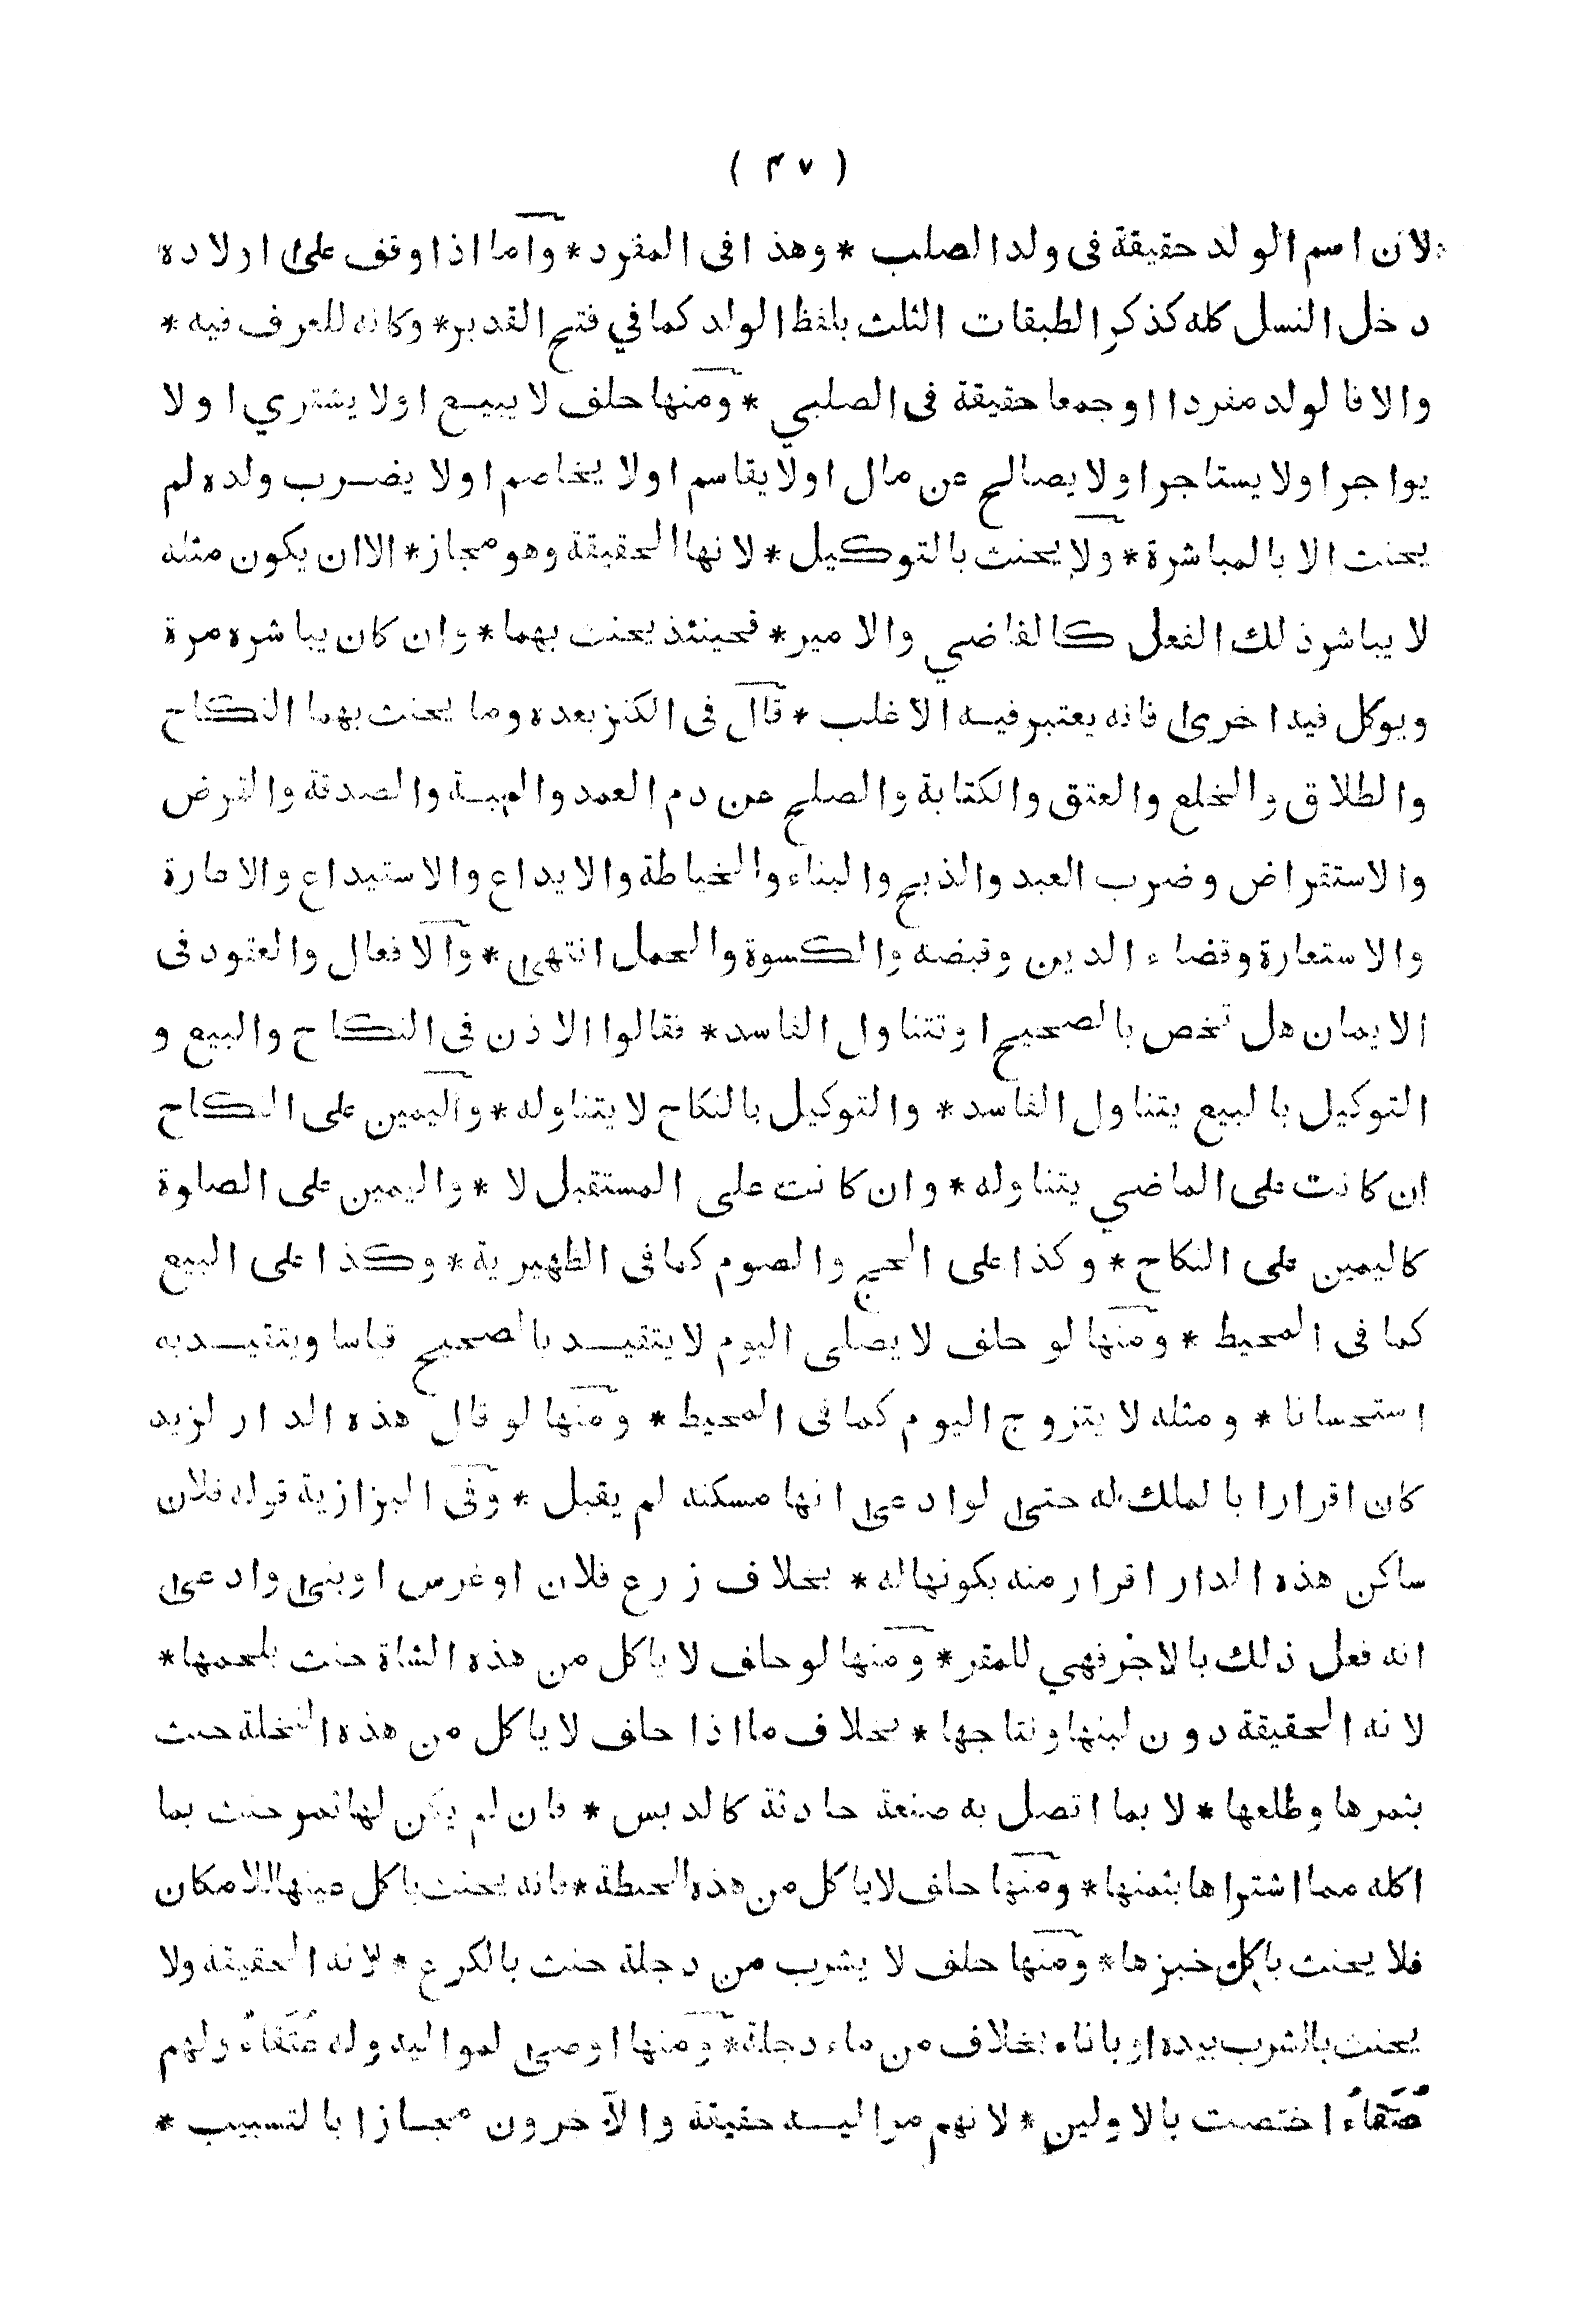 ( ٤٧ )
لان اسم الولد حقيقة فى ولد الصلب * وهذا فى المفرد * واما اذا وقف على اولاده
دخل النسل كله كذكر الطبقات الثلث بلفظ الولد كما في فتح القدير * وكانه للعرف فيه *
والا فالولد مفردا او جمعا حقيقة فى الصلبي * ومنها حلف لا يبيع او لا يشتري او لا
يواجر او لا يستاجر او لا يصالح عن مال او لا يقاسم او لا يخاصم او لا يضرب ولده لم
يحنث الا بالمباشرة * ولا يحنث بالتوكيل * لانها الحقيقة وهو مجاز * الا ان يكون مثله
لا يباشر ذلك الفعل كالقاضي والامير * فحينئذ يحنث بهما * وان كان يباشره مرة
ويوكل فيه اخرى فانه يعتبر فيه الاغلب * قال فى الكنز بعده وما يحنث بهما النكاح
والطلاق والخلع والعتق والكتابة والصلح عن دم العمد والهبة والصدقة والقرض
والاستقراض وضرب العبد والذبح والبناء والخياطة والايداع والاستيداع والاعارة
والاستعارة وقضاء الدين وقبضه والكسوة والحمل انتهى * والافعال والعقود فى
الايمان هل تخص بالصحيح او تتناول الفاسد * فقالوا الاذن فى النكاح والبيع و
التوكيل بالبيع يتناول الفاسد * والتوكيل بالنكاح لا يتناوله * واليمين على النكاح
ان كانت على الماضي يتناوله * وان كانت على المستقبل لا * واليمين على الصلوة
كاليمين على النكاح * وكذا على الحج والصوم كما فى الظهيرية * وكذا على البيع
كما فى المحيط * ومنها لو حلف لا يصلى اليوم لا يتقيد بالصحيح قياسا ويتقيد به
استحسانا * ومثله لا يتزوج اليوم كما فى المحيط * ومنها لو قال هذه الدار لزيد
كان اقرارا بالملك له حتى لو ادعى انها مسكنه لم يقبل * وفى البزازية قوله فلان
ساكن هذه الدار اقرار منه بكونها له * بخلاف زرع فلان او غرس او بنى وادعى
انه فعل ذلك بالاجر فهي للمقر * ومنها لو حلف لا ياكل من هذه الشاة حنث بلحمها *
لانه الحقيقة دون لبنها ونتاجها * بخلاف ما اذا حلف لا ياكل من هذه النخلة حنث
بثمرها وطلعها * لا بما اتصل به صنعة حادثة كالدبس * فان لم يكن لها ثمر حنث بما
اكله مما اشتراها بثمنها * ومنها حلف لا ياكل من هذه الحنطة * فانه يحنث باكل عينها للامكان
فلا يحنث باكل خبزها * ومنها حلف لا يشرب من دجلة حنث بالكرع * لانه الحقيقة ولا
يحنث بالشرب بيده او باناء بخلاف من ماء دجلة * ومنها اوصى لمواليه وله عُتَقَاءُ ولهم
عُتَقَاءُ اختصت بالاولين * لانهم مواليه حقيقة والآخرون مجازا بالتسبيب *